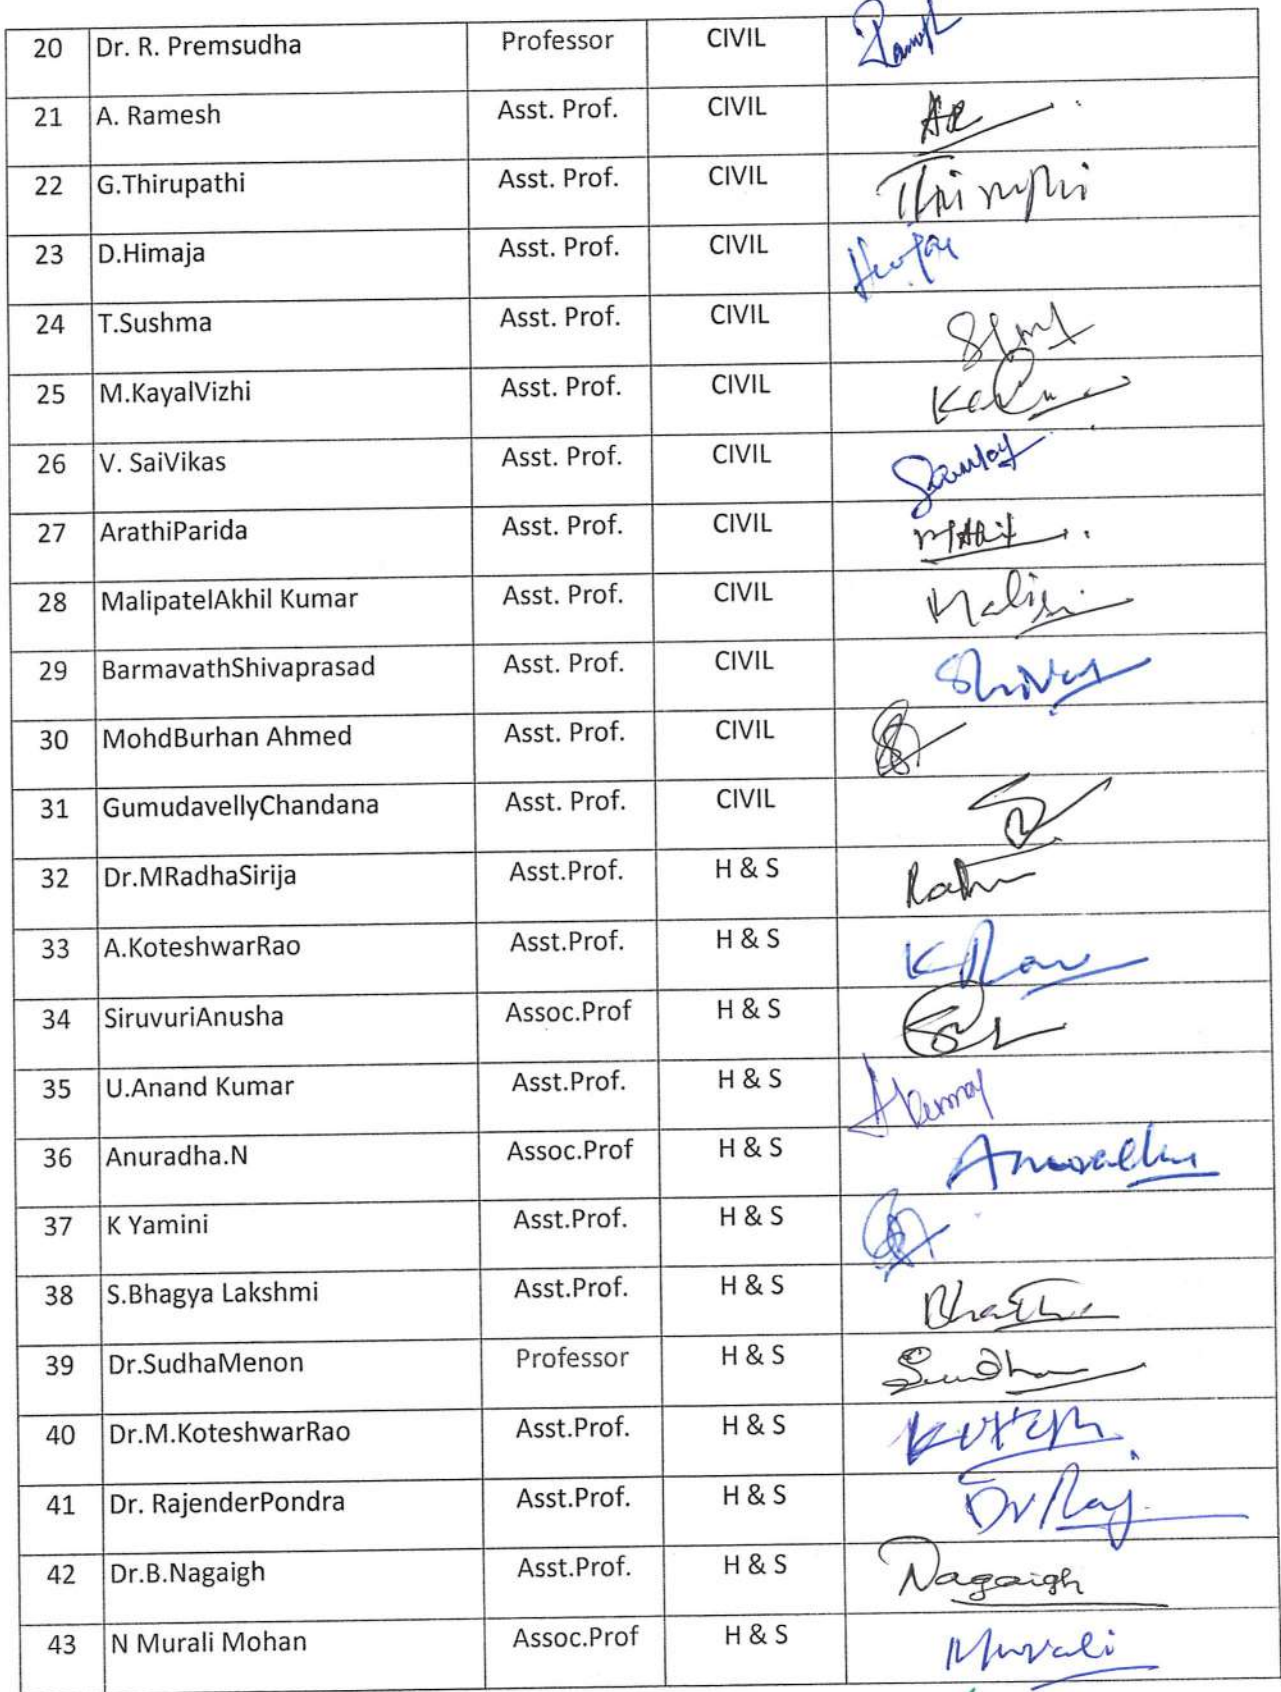 20 Dr. R. Premsudha Professor CIVIL
21 A. Ramesh Asst. Prof. CIVIL AR
22 G.Thirupathi Asst. Prof. CIVIL
23 D.Himaja Asst. Prof. CIVIL
24 T.Sushma Asst. Prof. CIVIL
25 M.KayalVizhi Asst. Prof. CIVIL
26 V. SaiVikas Asst. Prof. CIVIL
27 ArathiParida Asst. Prof. CIVIL
28 MalipatelAkhil Kumar Asst. Prof. CIVIL
29 BarmavathShivaprasad Asst. Prof. CIVIL
30 MohdBurhan Ahmed Asst. Prof. CIVIL
31 GumudavellyChandana Asst. Prof. CIVIL
32 Dr.MRadhaSirija Asst.Prof. H & S
33 A.KoteshwarRao Asst.Prof. H & S K Rao
34 SiruvuriAnusha Assoc.Prof H & S
35 U.Anand Kumar Asst.Prof. H & S
36 Anuradha.N Assoc.Prof H & S
37 K Yamini Asst.Prof. H & S
38 S.Bhagya Lakshmi Asst.Prof. H & S
39 Dr.SudhaMenon Professor H & S
40 Dr.M.KoteshwarRao Asst.Prof. H & S
41 Dr. RajenderPondra Asst.Prof. H & S Dr Raj
42 Dr.B.Nagaigh Asst.Prof. H & S Nagaigh
43 N Murali Mohan Assoc.Prof H & S Murali